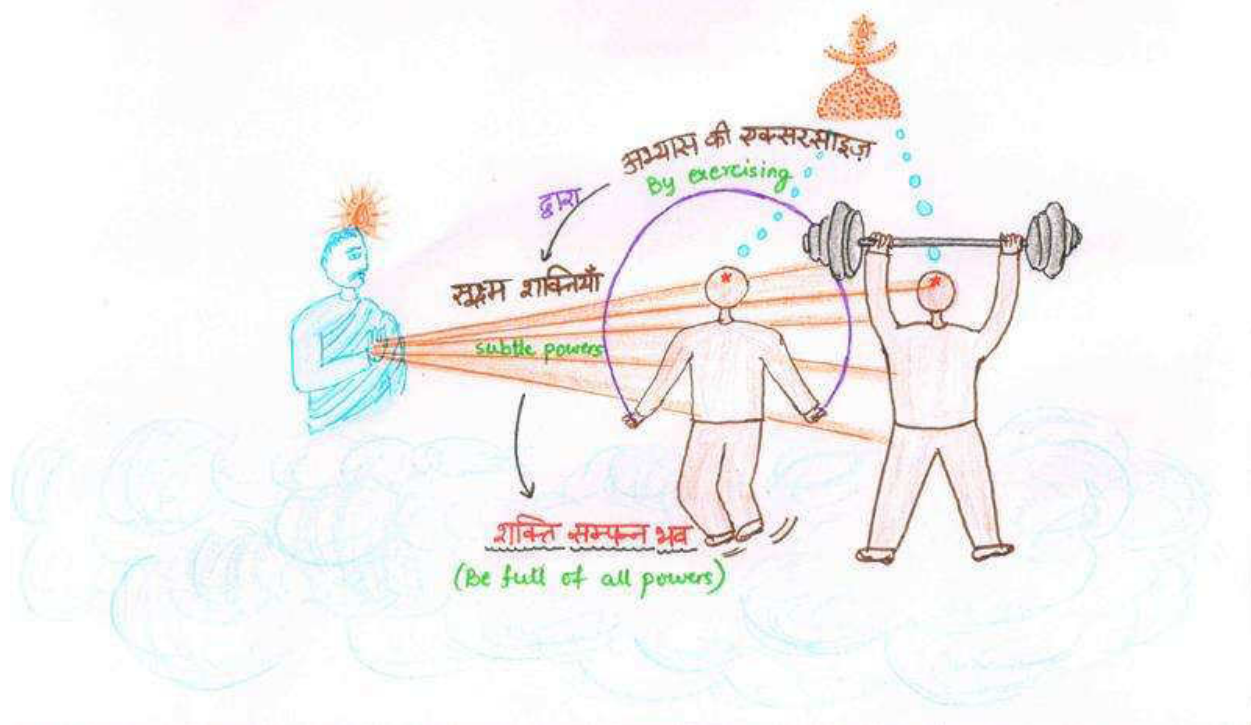 अभ्यास की एक्सरसाइज़
By exercising
द्वारा
सूक्ष्म शक्तियाँ
subtle powers
शक्ति सम्पन्न भव
(Be full of all powers)